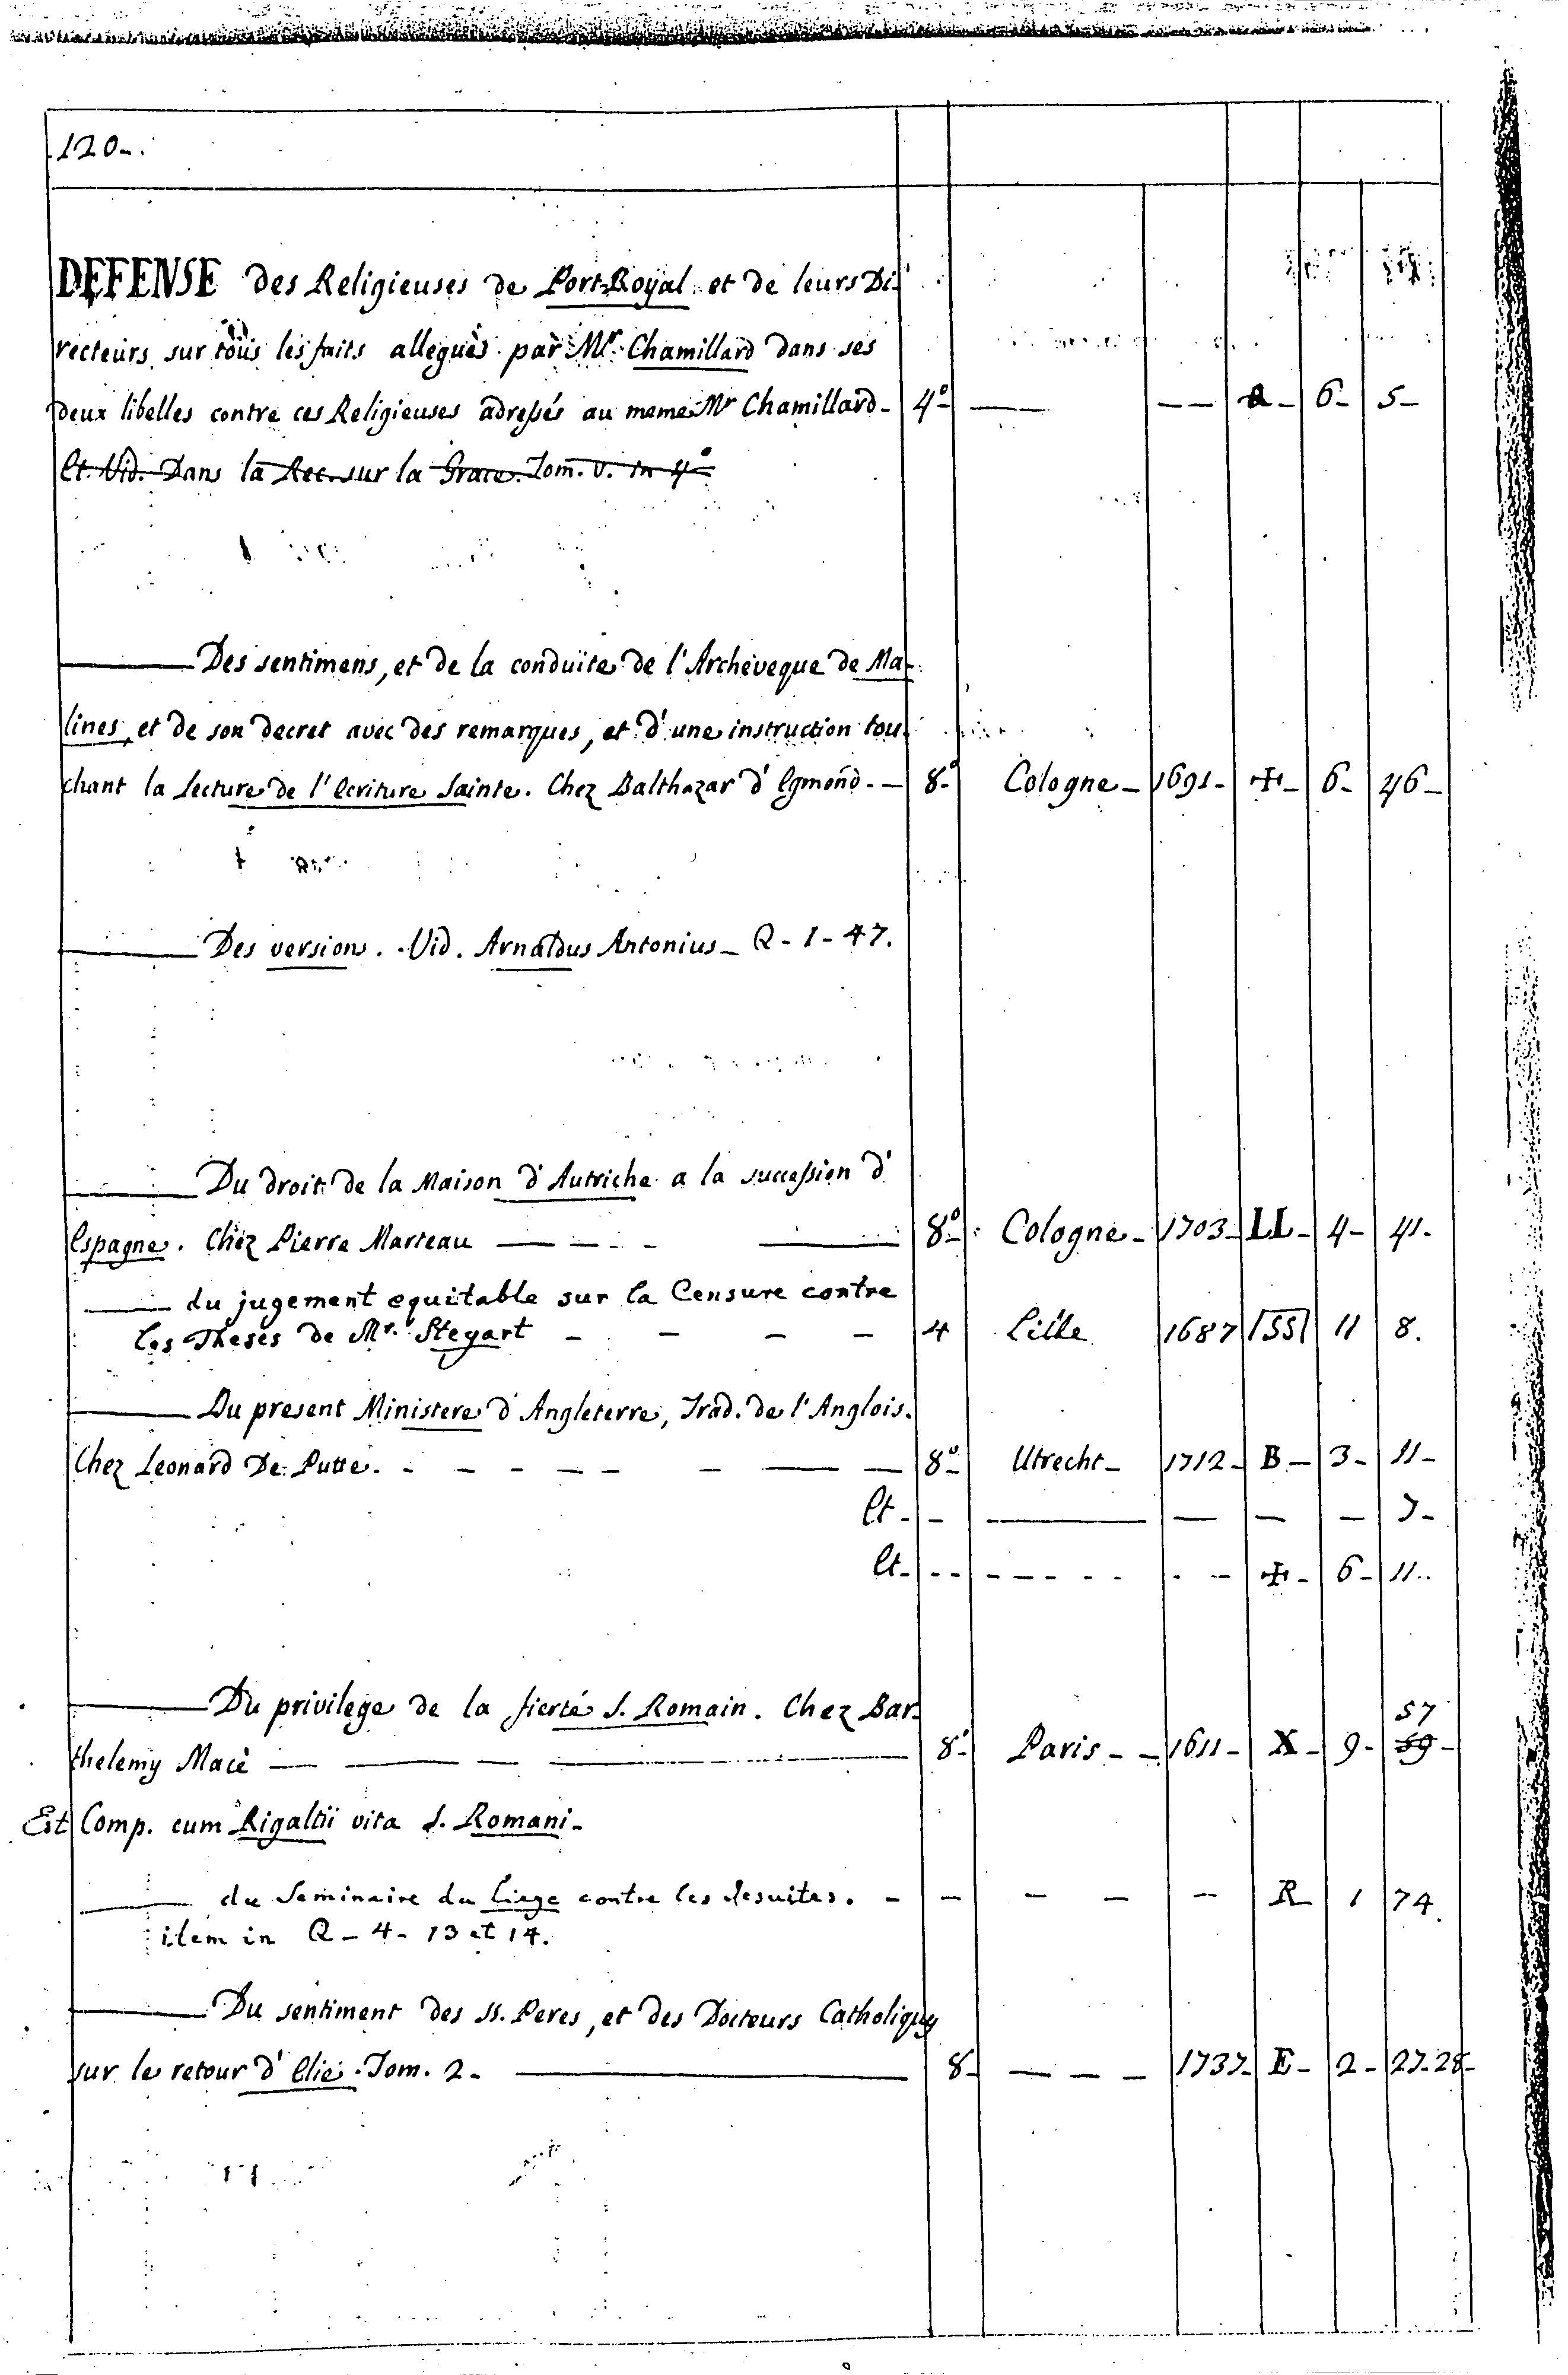 120-.
DEFENSE des Religieuses de Port-Royal et de leurs Di-
recteurs sur tous les faits alleguès par Mr. Chamillard dans ses
deux libelles contre ces Religieuses adressés au meme Mr Chamillard- 4º- — — — 6- 5-
Et. Vid. Dans la Rec. sur la Grace. Tom. V. in 4º
— Des sentimens, et de la conduite de l'Archeveque de Ma-
lines, et de son decret avec des remarques, et d'une instruction tou-
chant la lecture de l'Ecriture Sainte. Chez Balthazar d'Egmond. — 8º- Cologne- 1691- ✠- 6- 46-
— Des versions. Vid. Arnaldus Antonius- Q-1-47.
— Du droit de la Maison d'Autriche a la succession d'
Espagne. Chez Pierre Marteau — — 8º- Cologne- 1703- LL- 4- 41-
— du jugement equitable sur la Censure contre
les Theses de Mr. Steyart - - - - 4 Lille 1687 SS 11 8.
— Du present Ministere d'Angleterre, Trad. de l'Anglois.
Chez Leonard De Putte. - - - - — — 8º- Utrecht- 1712- B- 3- 11-
Et- - — — — — 7-
Et- - - - - - - ✠- 6- 11-
— Du privilege de la fierté S. Romain. Chez Bar-
57
thelemy Macè — — — 8º- Paris- - 1611- X- 9- 59-
Est Comp. cum Rigaltii vita S. Romani-
— du Seminaire du Liege contre les Jesuites. - - - - - R 1 74.
item in Q-4-13 et 14.
— Du sentiment des SS. Peres, et des Docteurs Catholiques
sur le retour d'Elie. Tom. 2- — 8- — - - 1737- E- 2- 27-28-